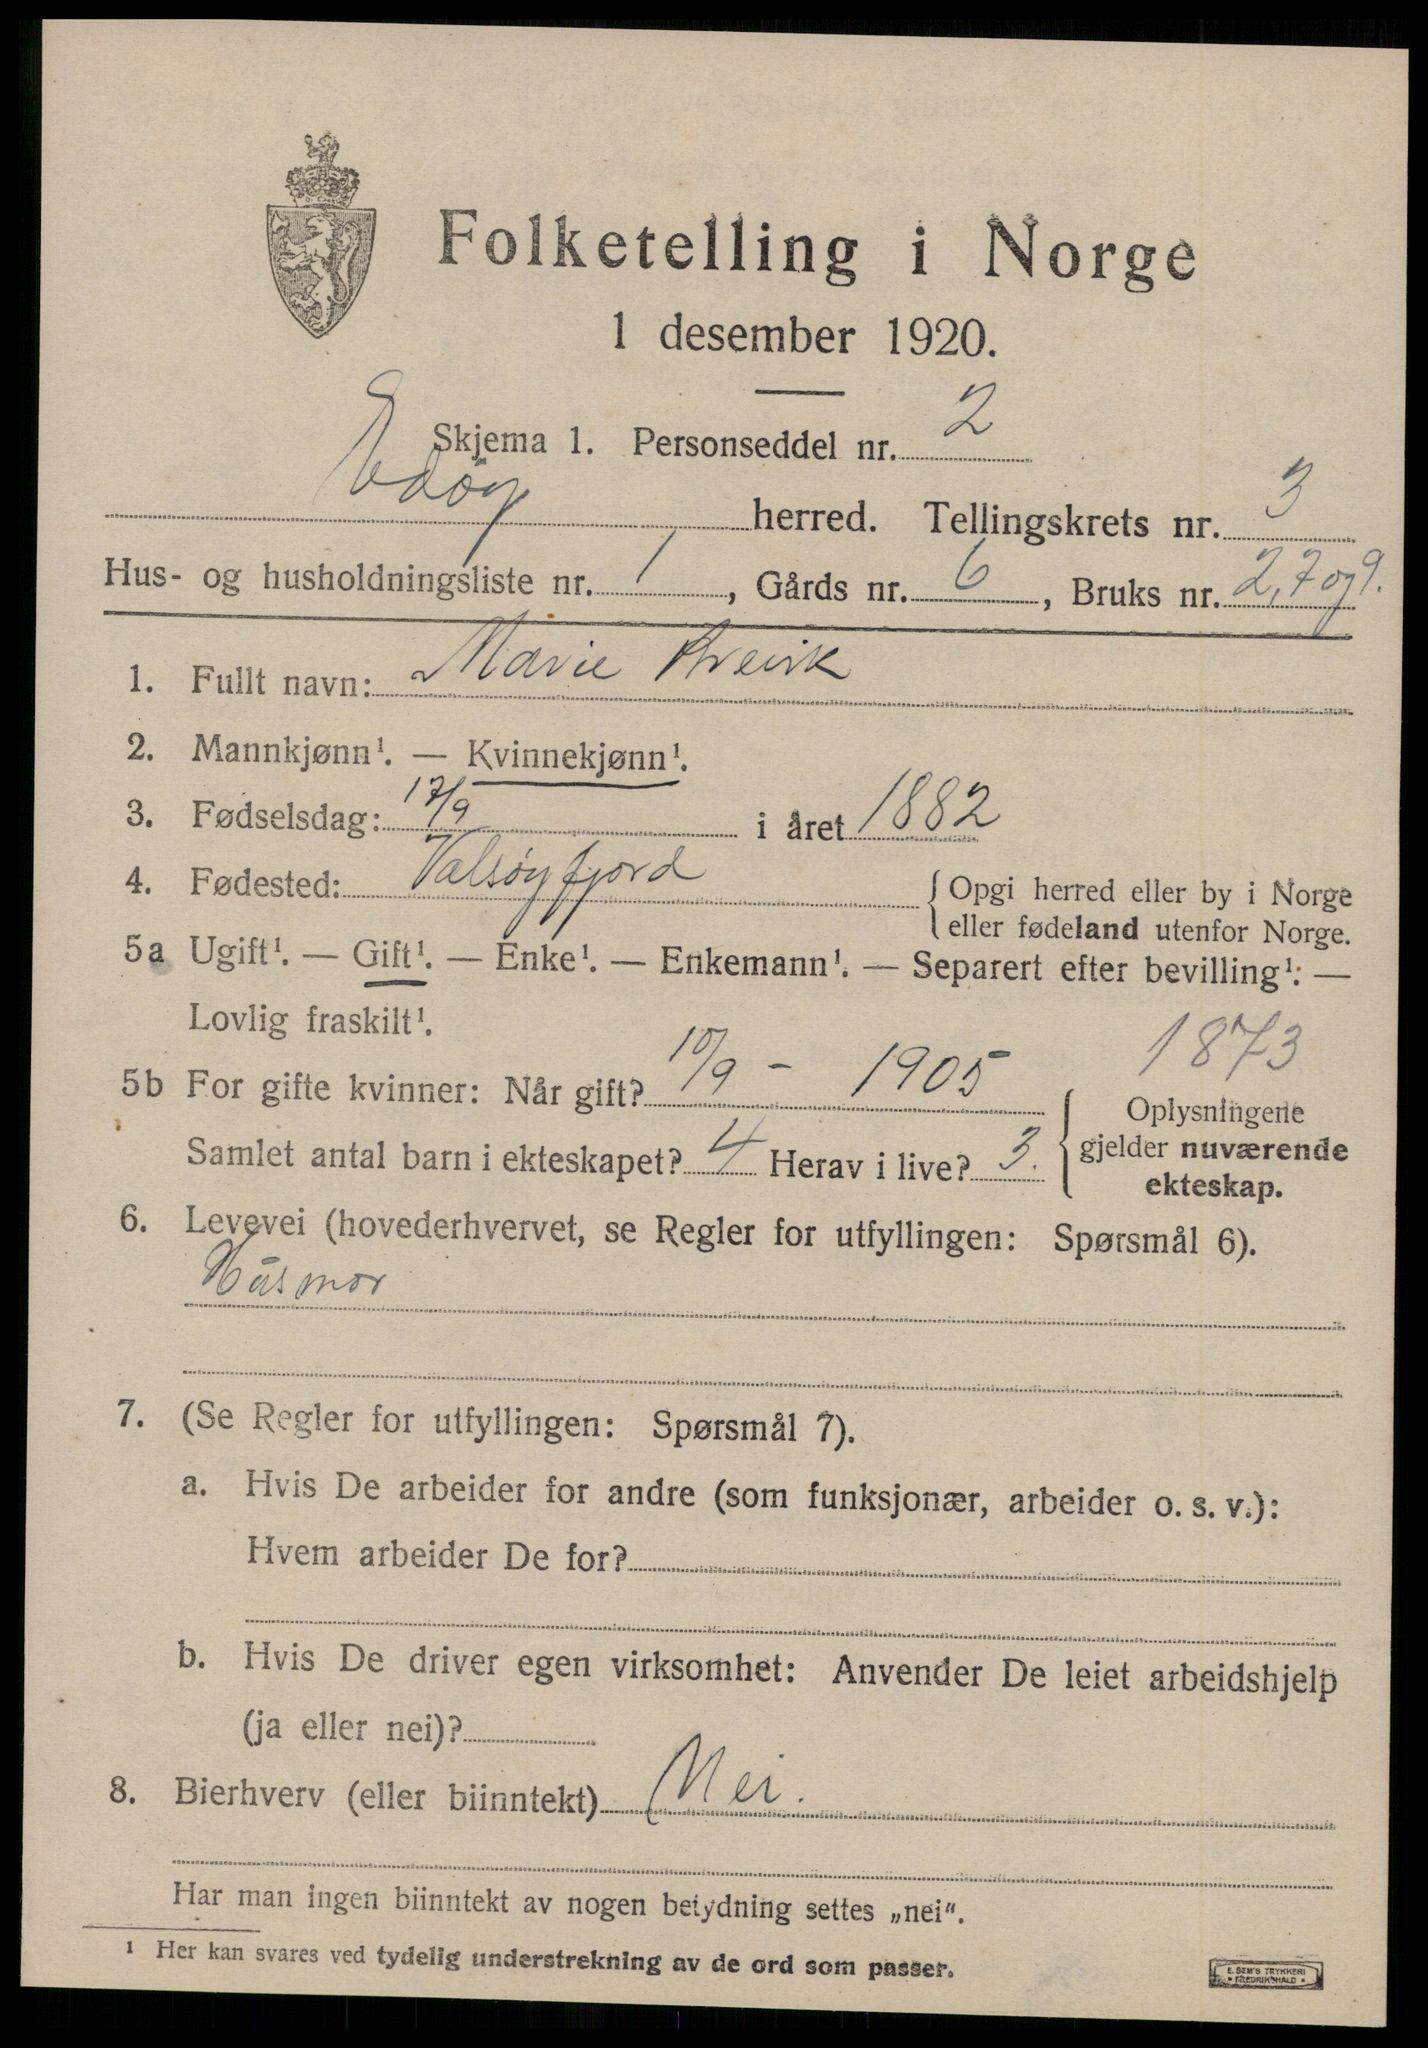 Folketelling i Norge
1 desember 1920.
Skjema 1. Personseddel nr. 2
Edøy herred. Tellingskrets nr. 3
Hus- og husholdningsliste nr. 1, Gårds nr. 6, Bruks nr. 2, 7 og 9.
1. Fullt navn: Marie
2. Mannkjønn¹. — Kvinnekjønn¹.
3. Fødselsdag: 17/9 i året 1882
4. Fødested: Valsøyfjord { Opgi herred eller by i Norge
eller fødeland utenfor Norge.
5a Ugift¹. — Gift¹. — Enke¹. — Enkemann¹. — Separert efter bevilling¹. —
Lovlig fraskilt¹.
1873
5b For gifte kvinner: Når gift? 10/9 - 1905
Samlet antal barn i ekteskapet? 4 Herav i live? 3.
{ Oplysningene
gjelder nuværende
ekteskap.
6. Levevei (hovederhvervet, se Regler for utfyllingen: Spørsmål 6).
Husmor
7. (Se Regler for utfyllingen: Spørsmål 7).
a. Hvis De arbeider for andre (som funksjonær, arbeider o. s. v.):
Hvem arbeider De for?
b. Hvis De driver egen virksomhet: Anvender De leiet arbeidshjelp
(ja eller nei)?
8. Bierhverv (eller biinntekt) Nei.
Har man ingen biinntekt av nogen betydning settes „nei".
¹ Her kan svares ved tydelig understrekning av de ord som passer.
E. SEM'S TRYKKERI
• FREDRIKSHALD •